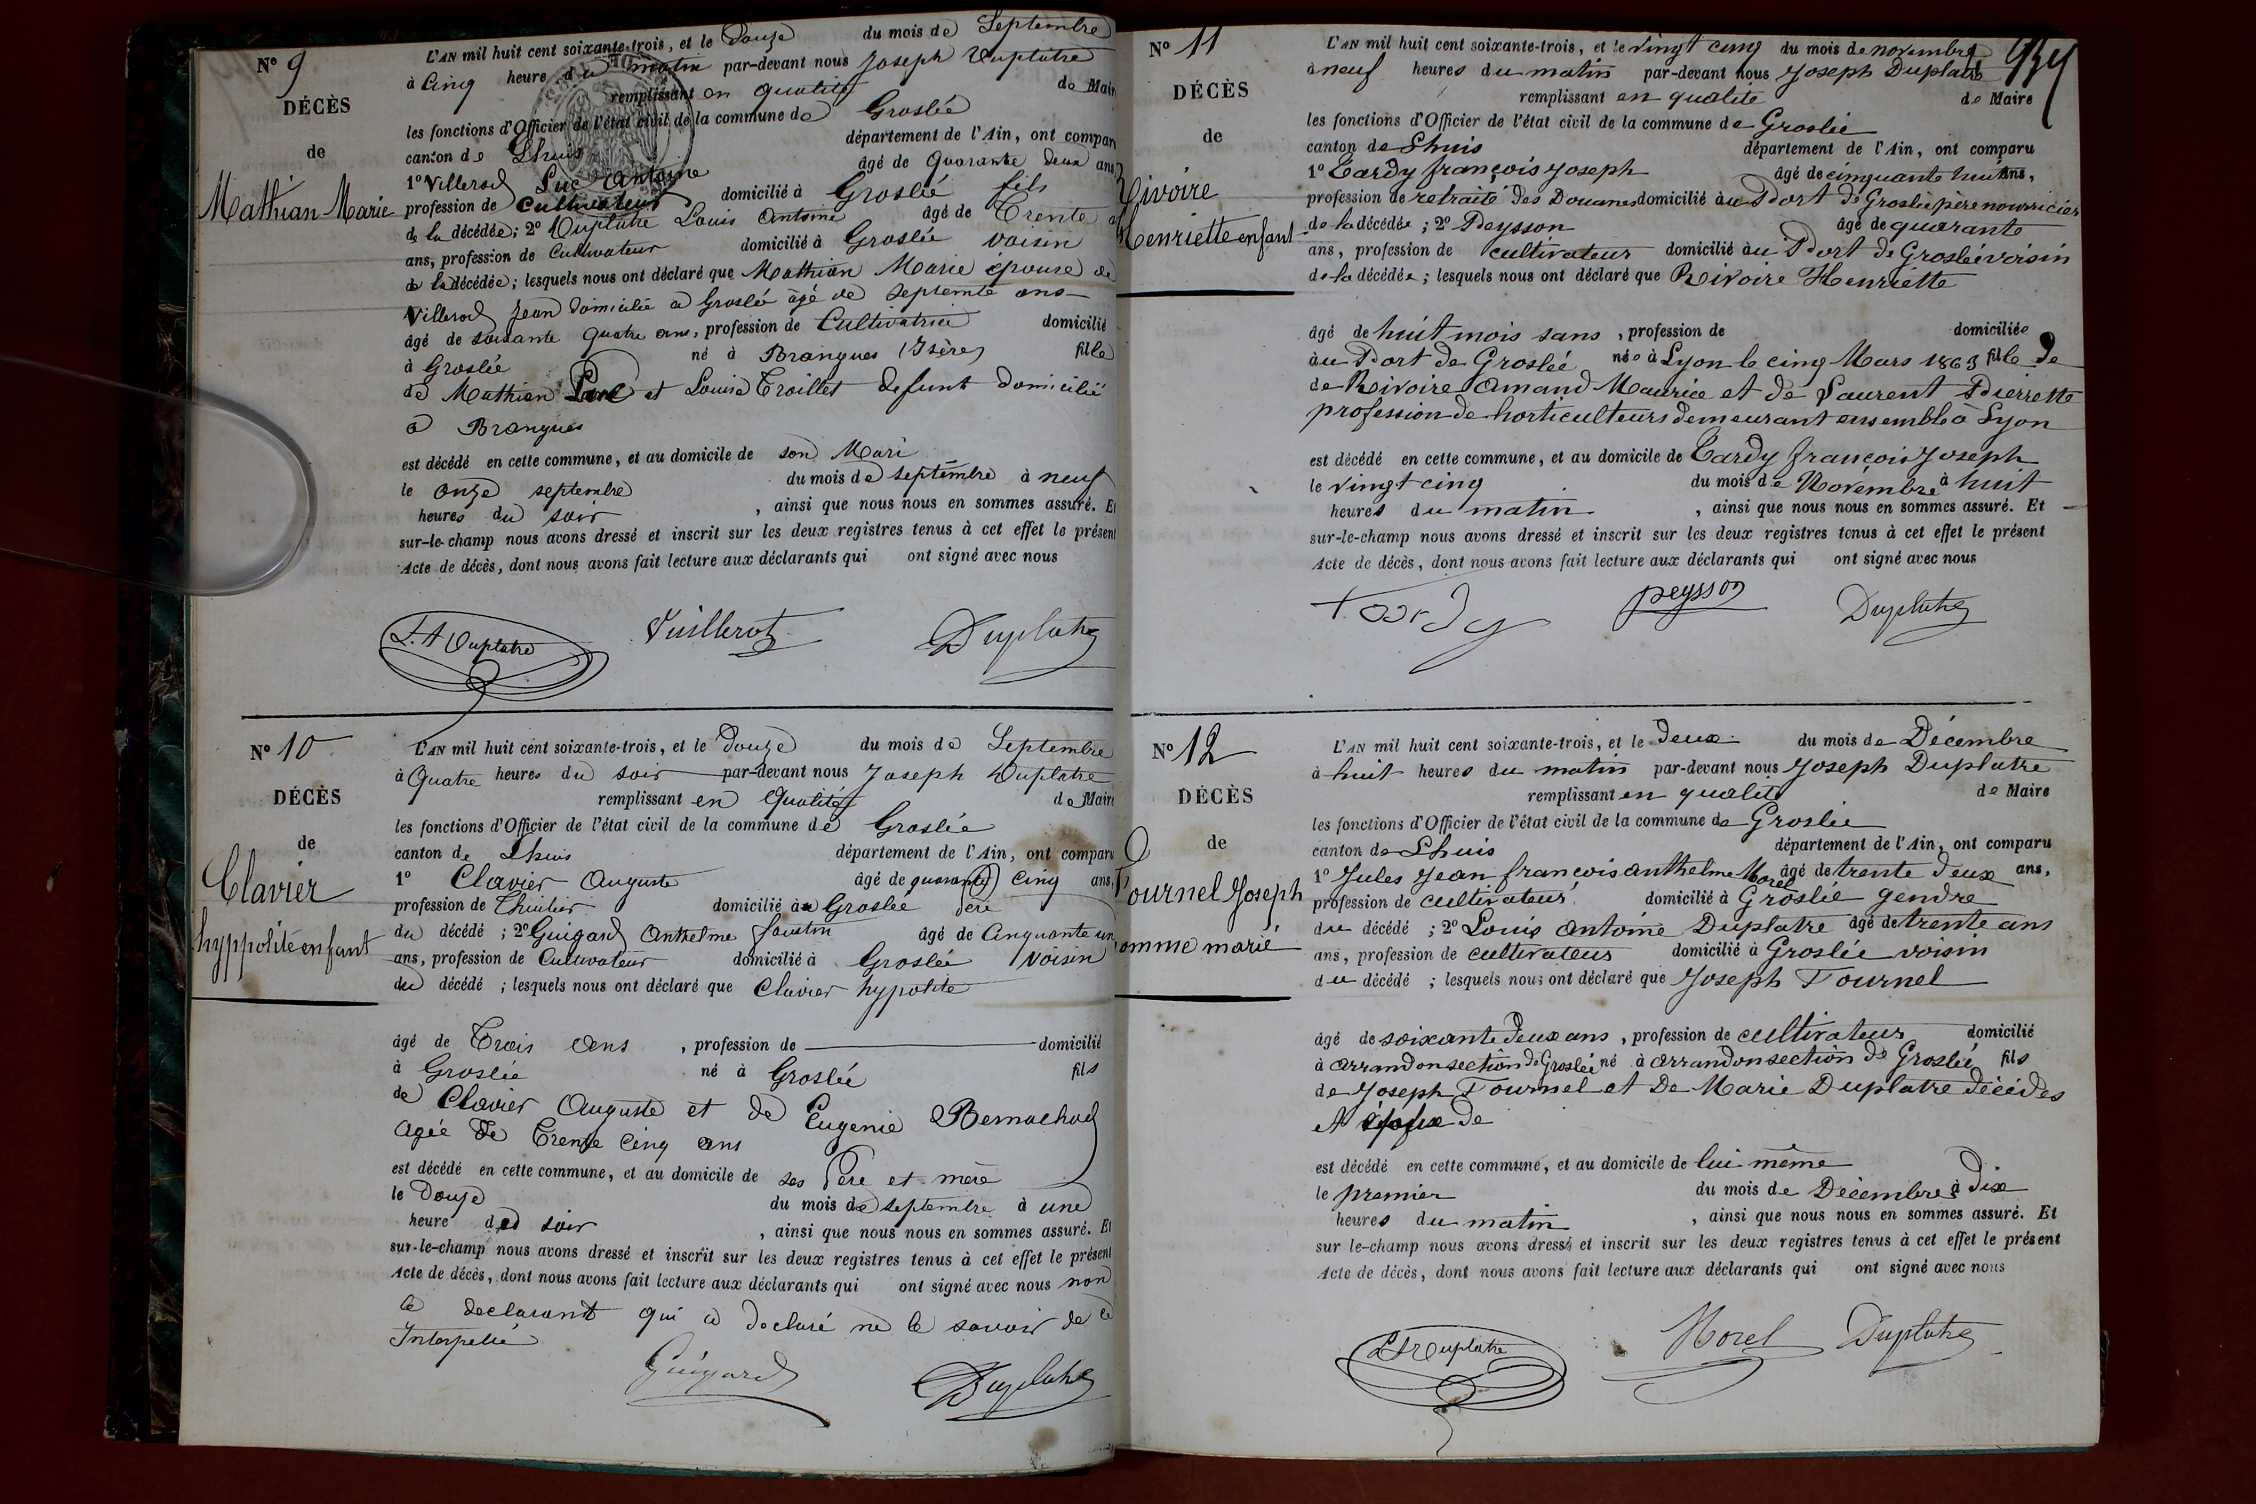 N° 9
DÉCÈS
de
Mathian Marie
L'AN mil huit cent soixante-trois, et le Douze du mois de Septembre
à Cinq heure du matin par-devant nous Joseph Duplatre
remplissant en qualité de Maire
les fonctions d'Officier de l'état civil de la commune de Groslée
canton de Lhuis département de l'Ain, ont compar
1° Villerod Luc Antoine âgé de Quarante Deux ans
profession de Cultivateur domicilié à Groslée fils
de la décédée; 2° Duplatre Louis Antoine âgé de Trente
ans, profession de Cultivateur domicilié à Groslée voisin
de la décédée; lesquels nous ont déclaré que Mathian Marie épouse de
Villerod Jean Domicilié a Groslée âgé de septente ans
âgé de soixante quatre ans, profession de Cultivatrice domicilié
à Groslée né à Brangues (Isère) fille
de Mathian et Louise Troillet defunt domicilié
a Brangues
est décédé en cette commune, et au domicile de son Mari
le onze septembre du mois de septembre à neuf
heures du soir , ainsi que nous nous en sommes assuré. Et
sur-le-champ nous avons dressé et inscrit sur les deux registres tenus à cet effet le présent
Acte de décès, dont nous avons fait lecture aux déclarants qui ont signé avec nous
L. A Duplatre Vuillerot Duplatre
N° 10
DÉCÈS
de
Clavier
hyppolite enfant
L'AN mil huit cent soixante-trois, et le Douze du mois de Septembre
à Quatre heures du soir par-devant nous Joseph Duplatre
remplissant en Qualité de Maire
les fonctions d'Officier de l'état civil de la commune de Groslée
canton de Lhuis département de l'Ain, ont comparu
1° Clavier Auguste âgé de quarante cinq ans,
profession de Thuilier domicilié à Groslée père
du décédé ; 2° Guigard Anthelme faustin âgé de Cinquante un
ans, profession de Cultivateur domicilié à Groslée Voisin
du décédé ; lesquels nous ont déclaré que Clavier hypolite
âgé de Trois ans , profession de domicilié
à Groslée né à Groslée fils
de Clavier Auguste et de Eugenie Bernachod
agée de Trente cinq ans
est décédé en cette commune, et au domicile de ses Père et mère
le Douze du mois de septembre à une
heure du soir , ainsi que nous nous en sommes assuré. Et
sur-le-champ nous avons dressé et inscrit sur les deux registres tenus à cet effet le présent
Acte de décès, dont nous avons fait lecture aux déclarants qui ont signé avec nous non
le declarant qui a declaré ne le savoir de ce
Interpellé
Guigard Duplatre
934
N° 11
DÉCÈS
de
Rivoire
Henriette enfant
L'AN mil huit cent soixante-trois, et le vingt cinq du mois de novembre
à neuf heures du matin par-devant nous Joseph Duplatre
remplissant en qualité de Maire
les fonctions d'Officier de l'état civil de la commune de Groslée
canton de Lhuis département de l'Ain, ont comparu
1° Tardy françois Joseph âgé de cinquante huit ans,
profession de retraité des Douanes domicilié au Port de Groslée père nourricier
de la décédée ; 2° Peysson âgé de quarante
ans, profession de cultivateur domicilié au Port de Groslée voisin
de la décédée ; lesquels nous ont déclaré que Rivoire Henriette
âgé de huit mois sans , profession de domiciliée
au Port de Groslée née à Lyon le cinq Mars 1863 fille de
de Rivoire Amand Maurice et de Laurent Pierrette
profession de horticulteurs demeurant ensemble à Lyon
est décédé en cette commune, et au domicile de Tardy françois Joseph
le vingt cinq du mois de Novembre à huit
heures du matin , ainsi que nous nous en sommes assuré. Et
sur-le-champ nous avons dressé et inscrit sur les deux registres tenus à cet effet le présent
Acte de décès, dont nous avons fait lecture aux déclarants qui ont signé avec nous
tardy peysson Duplatre
N° 12
DÉCÈS
de
Tournel Joseph
omme marié
L'AN mil huit cent soixante-trois, et le deux du mois de Décembre
à huit heures du matin par-devant nous Joseph Duplatre
remplissant en qualité de Maire
les fonctions d'Officier de l'état civil de la commune de Groslée
canton de Lhuis département de l'Ain, ont comparu
1° Jules Jean françois anthelme Morel âgé de trente deux ans,
profession de cultivateur domicilié à Groslée gendre
du décédé ; 2° Louis antoine Duplatre âgé de trente ans
ans, profession de cultivateur domicilié à Groslée voisin
du décédé ; lesquels nous ont déclaré que Joseph Tournel
âgé de soixante deux ans , profession de cultivateur domicilié
à arrandon section de Groslée né à arrandon section de Groslée fils
de Joseph Tournel et De Marie Duplatre décédés
et époux de
est décédé en cette commune, et au domicile de lui même
le premier du mois de Décembre à dix
heures du matin , ainsi que nous nous en sommes assuré. Et
sur le-champ nous avons dressé et inscrit sur les deux registres tenus à cet effet le présent
Acte de décès, dont nous avons fait lecture aux déclarants qui ont signé avec nous
L A Duplatre Morel Duplatre